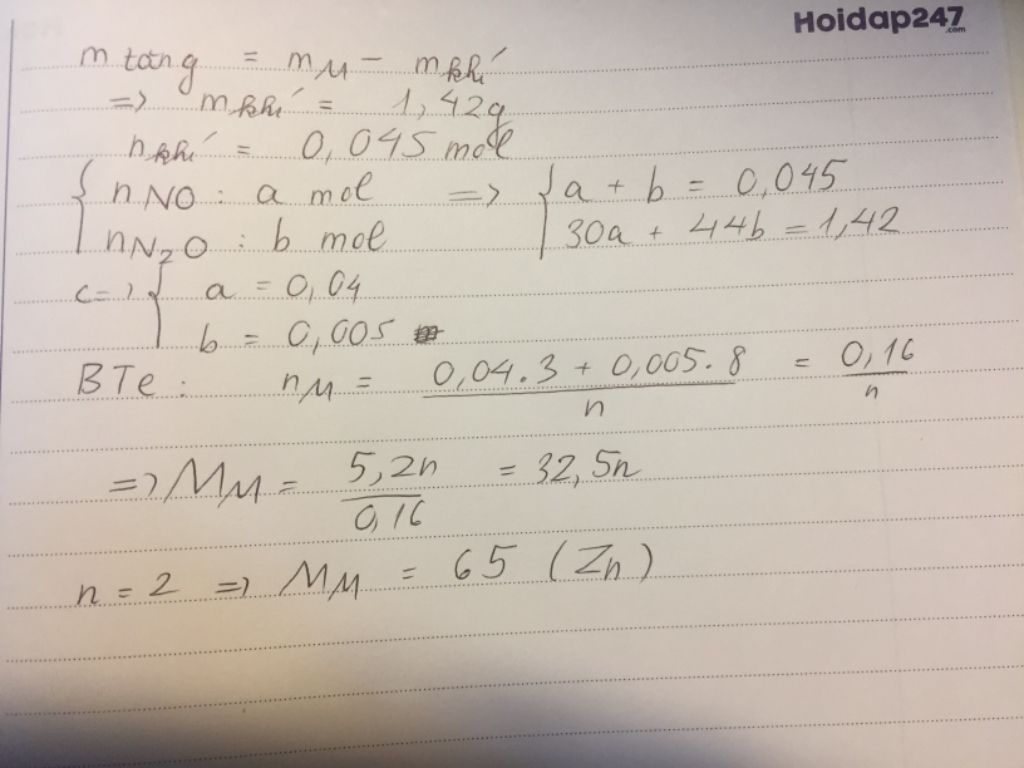 Hoidap247
.com
m tăng = mM - mkhí
=> mkhí = 1,42g
nkhí = 0,045 mol
{ nNO : a mol => { a + b = 0,045
nN2O : b mol 30a + 44b = 1,42
<=> { a = 0,04
b = 0,005
BTe : nM = (0,04.3 + 0,005.8)/n = 0,16/n
=> MM = 5,2n/0,16 = 32,5n
n = 2 => MM = 65 (Zn)